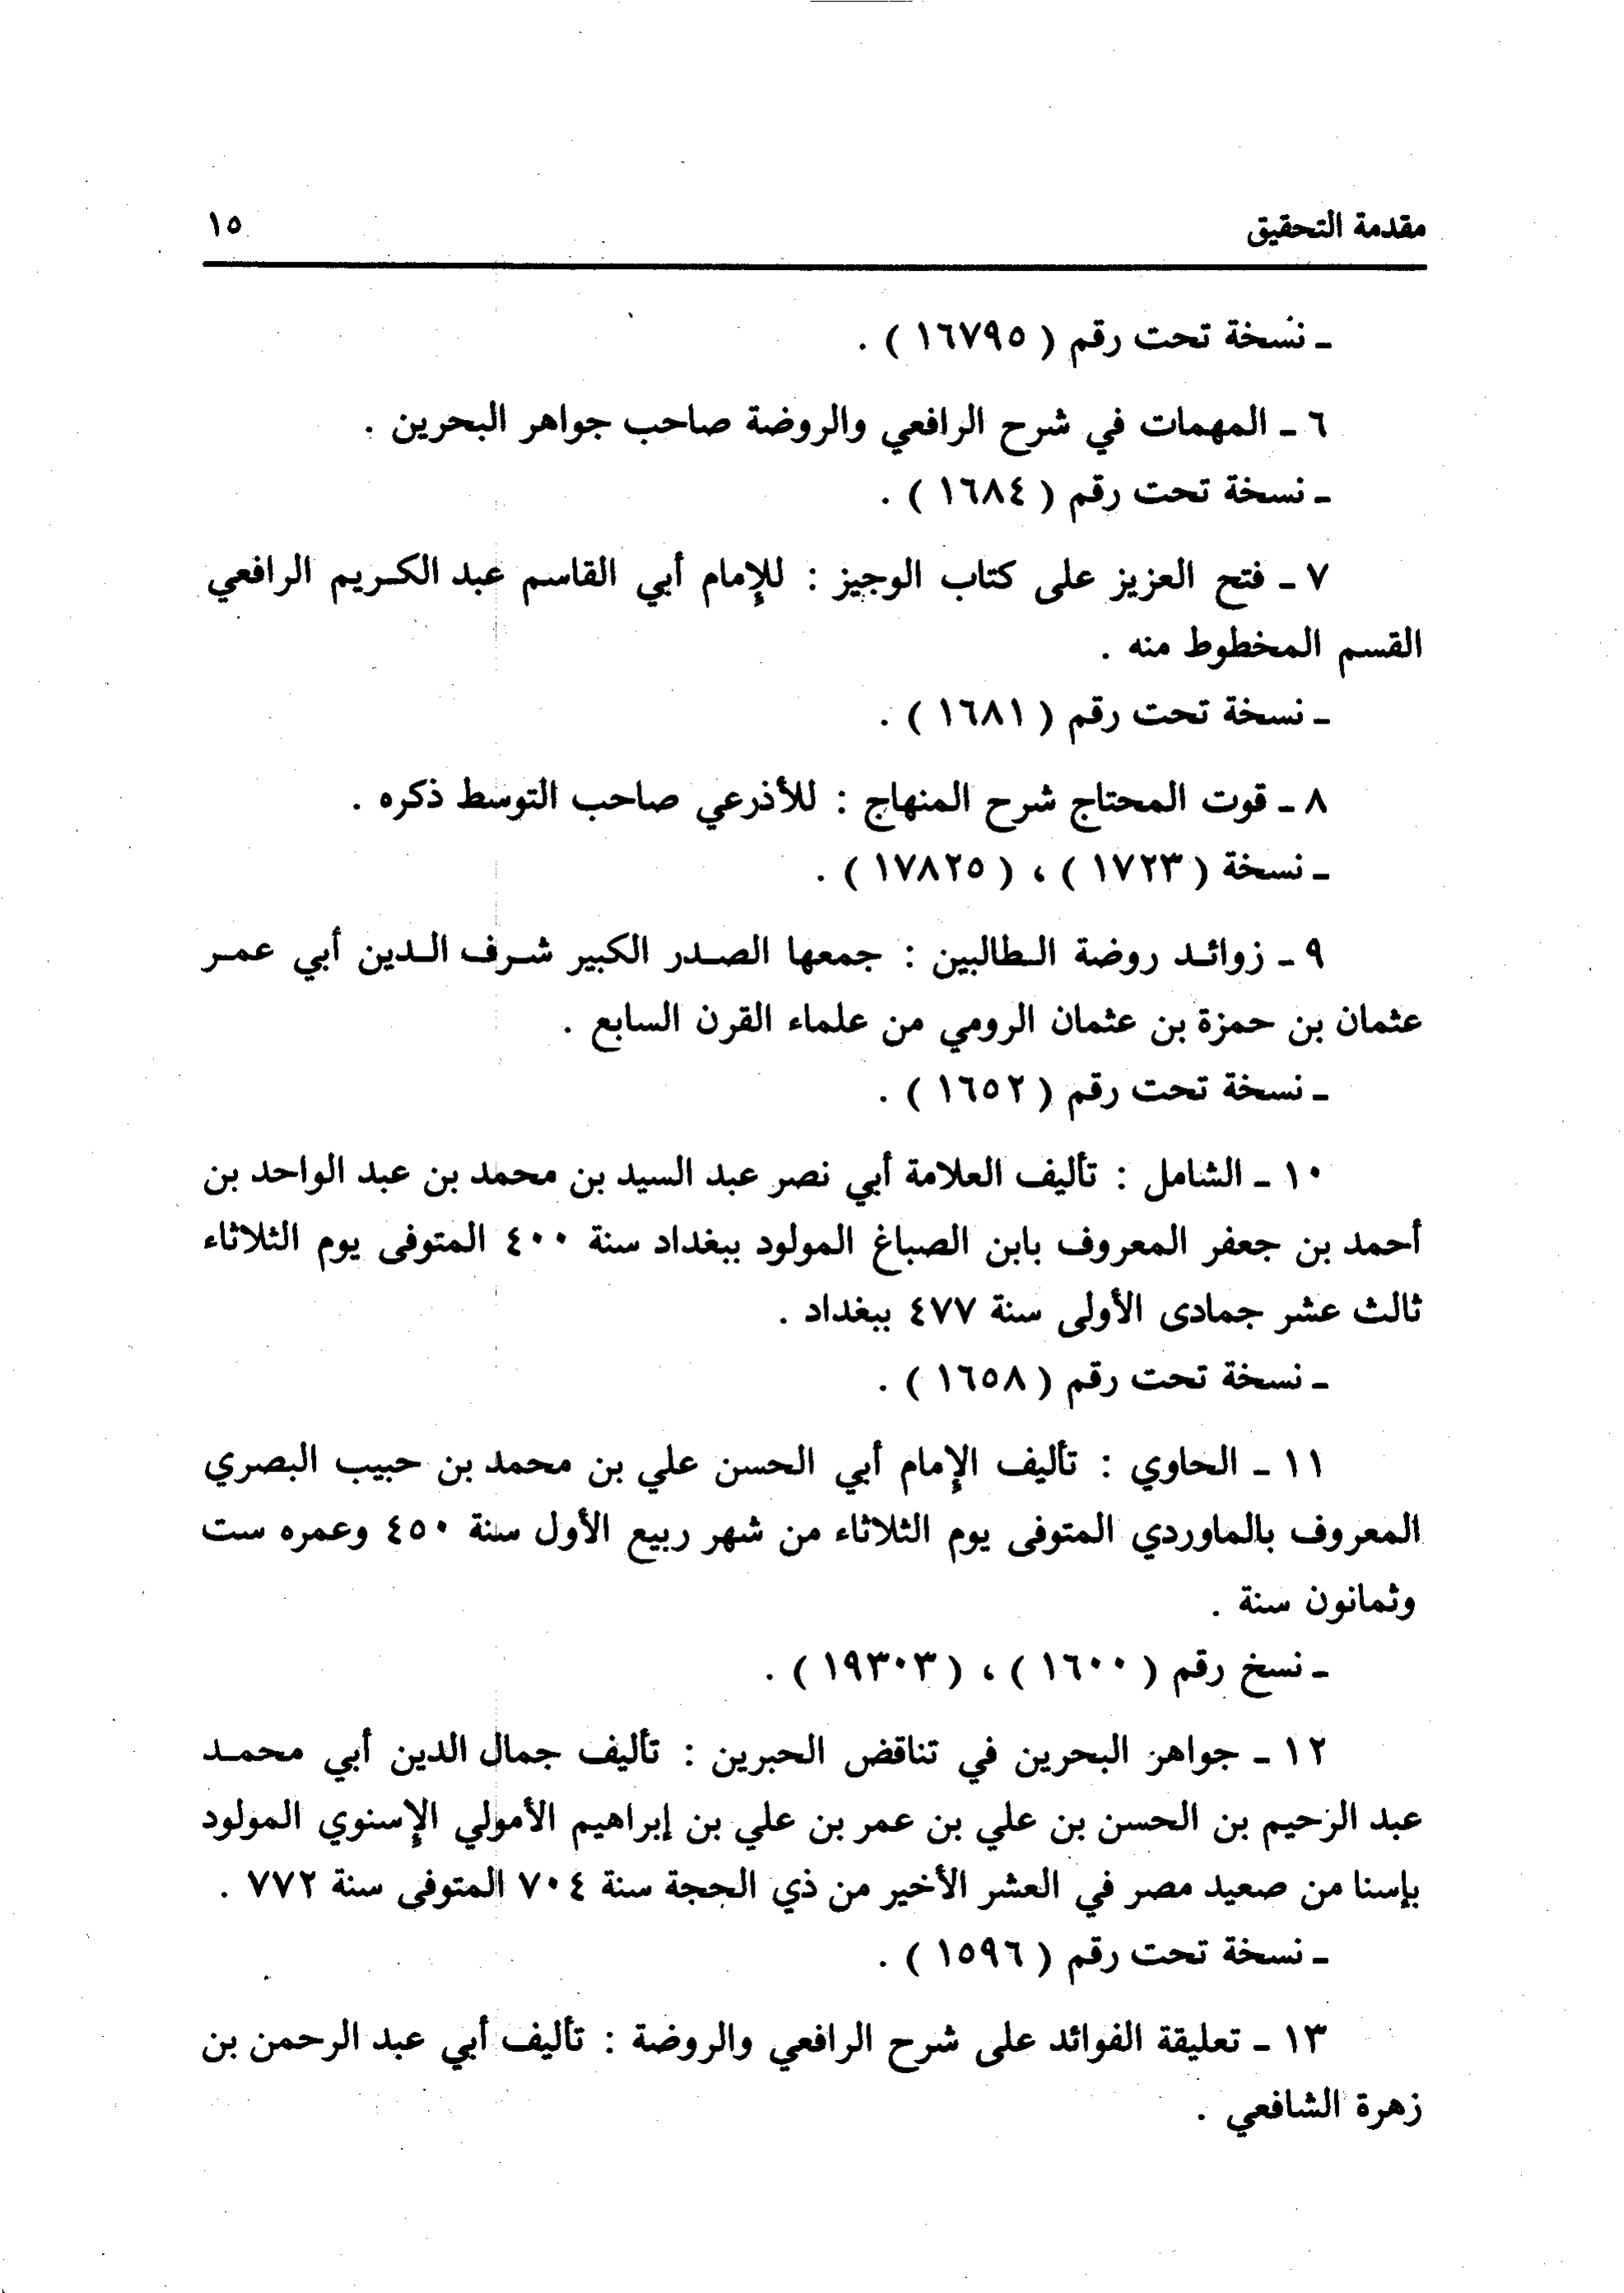 مقدمة التحقيق ١٥
ـ نسخة تحت رقم ( ١٦٧٩٥ ) .
٦ ـ المهمات في شرح الرافعي والروضة صاحب جواهر البحرين .
ـ نسخة تحت رقم ( ١٦٨٤ ) .
٧ ـ فتح العزيز على كتاب الوجيز : للإمام أبي القاسم عبد الكريم الرافعي
القسم المخطوط منه .
ـ نسخة تحت رقم ( ١٦٨١ ) .
٨ ـ قوت المحتاج شرح المنهاج : للأذرعي صاحب التوسط ذكره .
ـ نسخة ( ١٧٢٣ ) ، ( ١٧٨٢٥ ) .
٩ ـ زوائد روضة الطالبين : جمعها الصدر الكبير شرف الدين أبي عمر
عثمان بن حمزة بن عثمان الرومي من علماء القرن السابع .
ـ نسخة تحت رقم ( ١٦٥٢ ) .
١٠ ـ الشامل : تأليف العلامة أبي نصر عبد السيد بن محمد بن عبد الواحد بن
أحمد بن جعفر المعروف بابن الصباغ المولود ببغداد سنة ٤٠٠ المتوفى يوم الثلاثاء
ثالث عشر جمادى الأولى سنة ٤٧٧ ببغداد .
ـ نسخة تحت رقم ( ١٦٥٨ ) .
١١ ـ الحاوي : تأليف الإمام أبي الحسن علي بن محمد بن حبيب البصري
المعروف بالماوردي المتوفى يوم الثلاثاء من شهر ربيع الأول سنة ٤٥٠ وعمره ست
وثمانون سنة .
ـ نسخ رقم ( ١٦٠٠ ) ، ( ١٩٣٠٣ ) .
١٢ ـ جواهر البحرين في تناقض الحبرين : تأليف جمال الدين أبي محمد
عبد الرحيم بن الحسن بن علي بن عمر بن علي بن إبراهيم الأمولي الإسنوي المولود
بإسنا من صعيد مصر في العشر الأخير من ذي الحجة سنة ٧٠٤ المتوفى سنة ٧٧٢ .
ـ نسخة تحت رقم ( ١٥٩٦ ) .
١٣ ـ تعليقة الفوائد على شرح الرافعي والروضة : تأليف أبي عبد الرحمن بن
زهرة الشافعي .